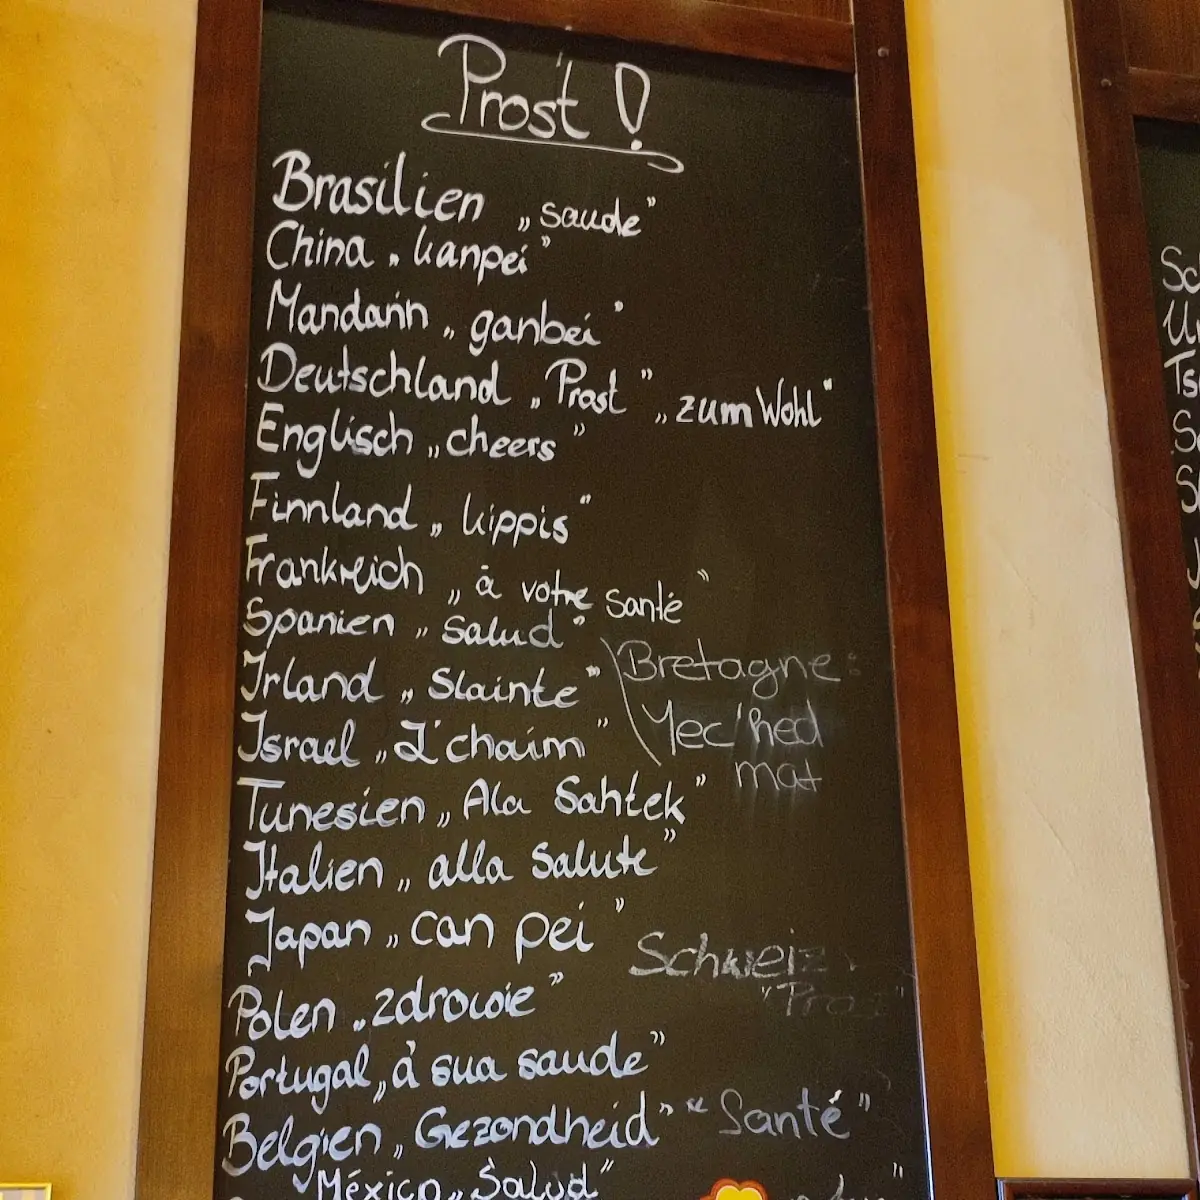 Prost!
Brasilien „saude”
China „kanpei”
Mandarin „ganbei”
Deutschland „Prost” „zum Wohl”
Englisch „cheers”
Finnland „kippis”
Frankreich „à votre santé”
Spanien „Salud”
Irland „Slainte”
Bretagne:
Yec'hed
mat
Israel „L'chaim”
Tunesien „Ala Sahtek”
Italien „alla Salute”
Japan „can pei”
Schweiz
Polen „zdrowie”
Portugal „à sua saude”
Belgien „Gezondheid” “Santé”
México „Salud”